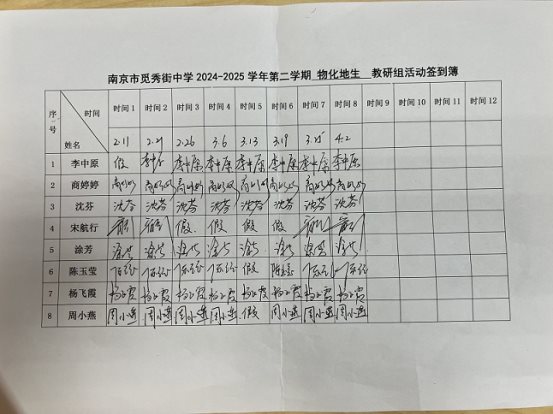 南京市觅秀街中学 2024-2025 学年第二学期 物化地生 教研组活动签到簿
序号 时间 姓名 时间 1 时间 2 时间 3 时间 4 时间 5 时间 6 时间 7 时间 8 时间 9 时间 10 时间 11 时间 12
2.11 2.21 2.26 3.6 3.13 3.19 4.2
1 李中原 假 李中原 李中原 李中原 李中原 李中原 李中原
2 商婷婷 商婷婷 商婷婷 商婷婷 商婷婷 商婷婷 商婷婷 商婷婷 商婷婷
3 沈芬 沈芬 沈芬 沈芬 沈芬 沈芬 沈芬 沈芬 沈芬
4 宋航行 假 假 假 假
5 涂芳 涂芳 涂芳 涂芳 涂芳 涂芳 涂芳 涂芳 涂芳
6 陈玉莹 假
7 杨飞霞 杨飞霞 杨飞霞 杨飞霞 杨飞霞 杨飞霞 杨飞霞 杨飞霞 杨飞霞
8 周小燕 周小燕 周小燕 周小燕 周小燕 假 周小燕 周小燕 周小燕